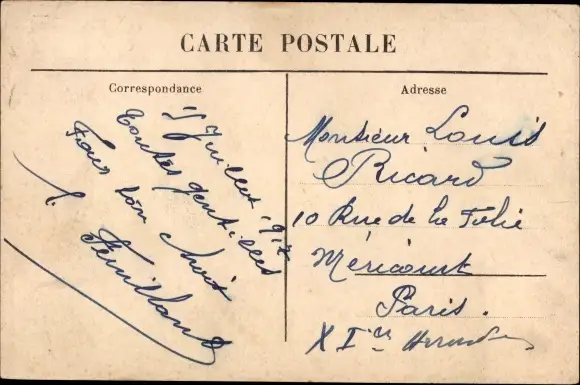 CARTE POSTALE
Correspondance
Adresse
15 Juillet 1912
toutes gentilles
Tous bon
Feuilland
Monsieur Louis
Ricard
10 Rue de la Folie
Méricourt
Paris.
XIe